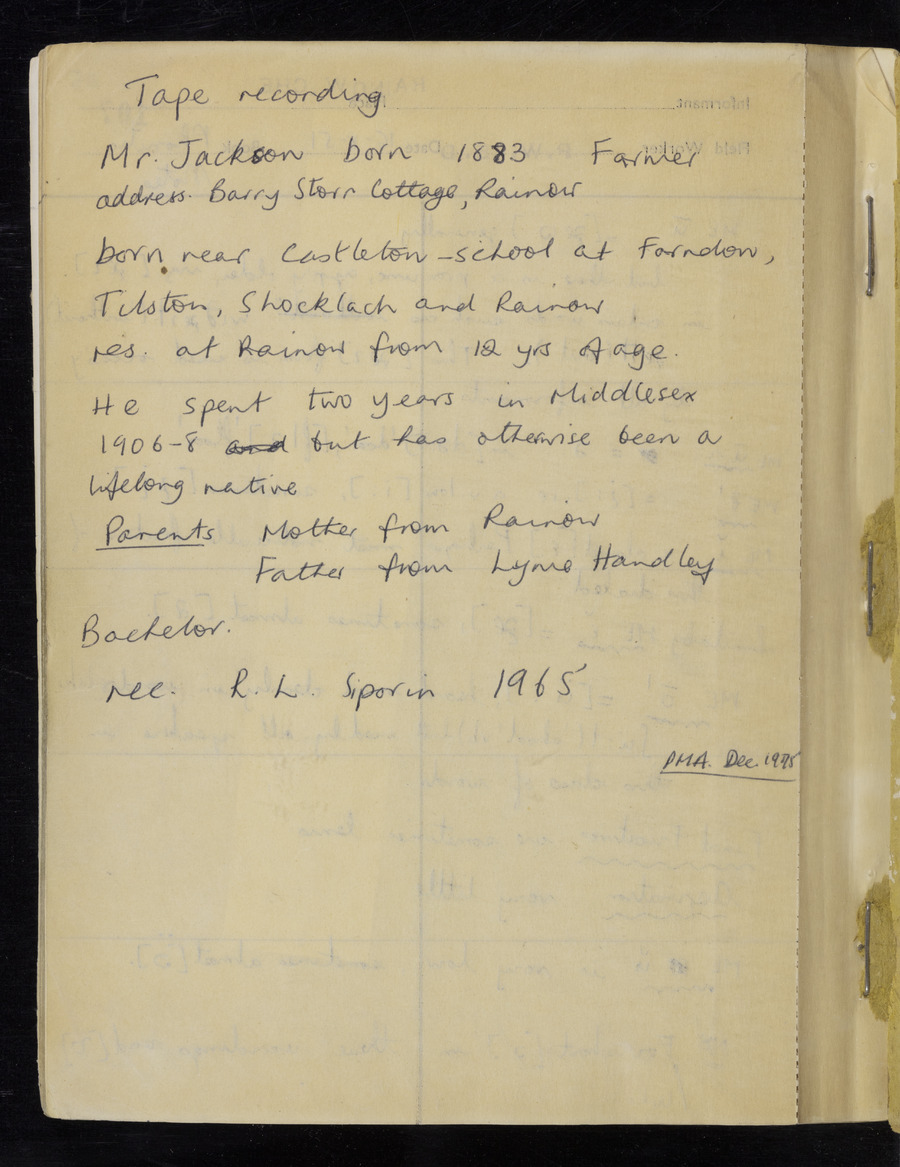 Tape recording
Mr. Jackson born 1883 Farmer
address. Barry Storr Cottage, Rainow
born near Castleton - school at Farndon,
Tilston, Shocklach and Rainow
res. at Rainow from 12 yrs of age.
He spent two years in Middlesex
1906-8 and but has otherwise been a
lifelong native
Parents Mother from Rainow
Father from Lyme Handley
Bachelor.
rec. R. L. Siporin 1965
PMA. Dec. 1975